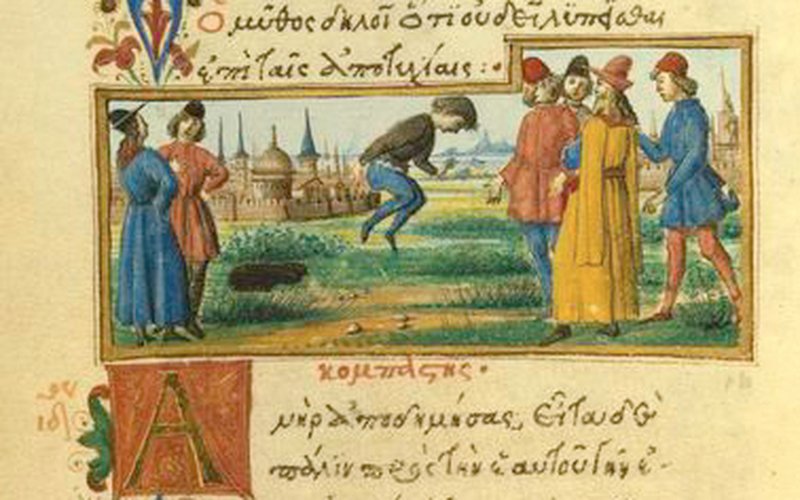 Ὁ μῦθος δηλοῖ ὅτι οὐ δεῖ λυπεῖσθαι
ἐπὶ ταῖς ἀποτυχίαις :•
κομπαστής •
Ἀνὴρ ἀποδημήσας, εἶτα δὲ
πάλιν πρὸς τὴν ἑαυτοῦ γῆν ἐ-